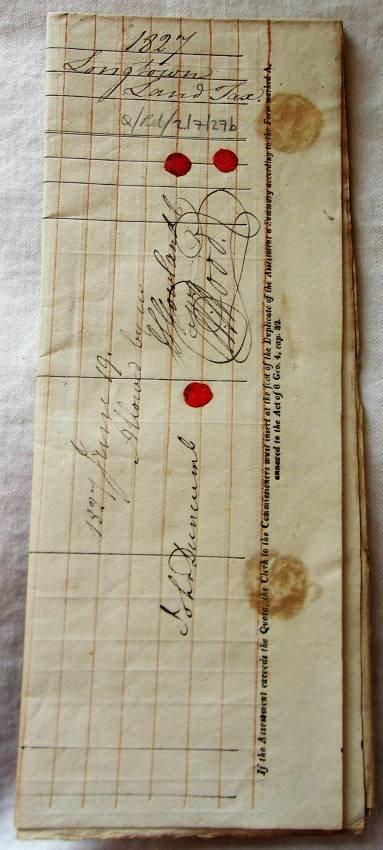 1827
Longtown
Land Tax.
Q/Rd/2/7/29b
1827 June 19.
Allowed by us
Wood
John Duncumb
If the Assessment exceeds the Quota, the Clerk to the Commissioners must insert at the foot of the Duplicate of the Assessment a Summary according to the Form marked A,
annexed to the Act of 6 Geo. 4, cap. 32.